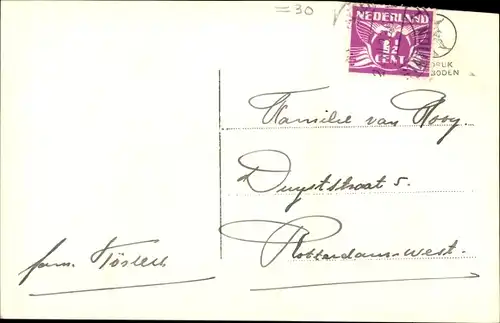 =30
NEDERLAND
CENT
DRUK
BODEN
Familie van Rooy.
Duystraat 5.
Rotterdam-West.
fam.